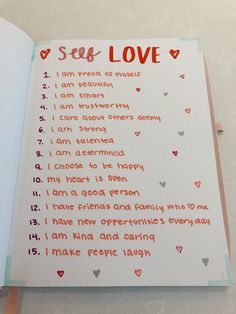 self LOVE
1. I am proud of myself
2. I am beautiful
3. I am smart
4. I am trustworthy
5. I care about others deeply
6. I am strong
7. I am talented
8. I am determined
9. I choose to be happy
10. my heart is open
11. I am a good person
12. I have friends and family who ♥ me
13. I have new opportunities every day
14. I am kind and caring
15. I make people laugh